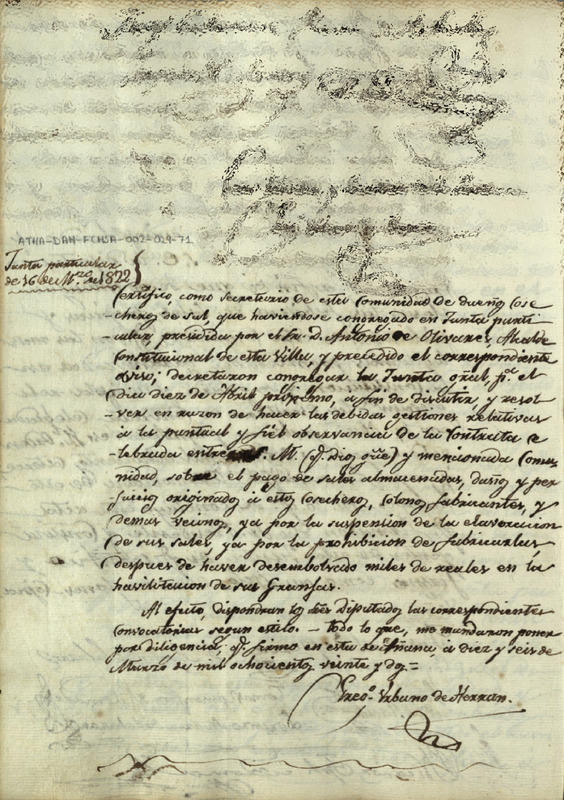 ATHA-DAH-FCHSA-002-029-71
Junta particular
de 16 de Mrzo. de 1822
Certifico como Secretario de esta Comunidad de dueños Cose-
cheros de sal, que haviendose congregado en Junta parti-
cular, presidida por el Sr. D. Antonio de Olivares, Alcalde
Constitucional de esta Villa, y precedido el correspondiente
aviso; decretaron congregar la Junta gral, pa. el
dia diez de Abril proximo, a fin de discutir y resol-
ver en razon de hacer las debidas gestiones relativas
à la puntual y fiel observancia de la Contrata ce-
lebrada entre S. M. (q. Dios gũe) y mencionada Comu-
nidad, sobre el pago de sales almacenadas, daños y per-
juicios originados à estos Cosecheros, Colonos fabricantes, y
demas vecinos, ya por la suspension de la elavoracion
de sus sales, ya por la prohibicion de fabricarlas
despues de haver desembolsado miles de reales en la
havilitacion de sus Granjas.
Al efecto, dispondran los Diputados las correspondientes
Convocatorias segun estilo. - todo lo que, me mandaron poner
por diligencia, q. firmo en esta de Añana, à diez y seis de
Marzo de mil ochocientos veinte y dos =
Grego. Urbano de Herran.